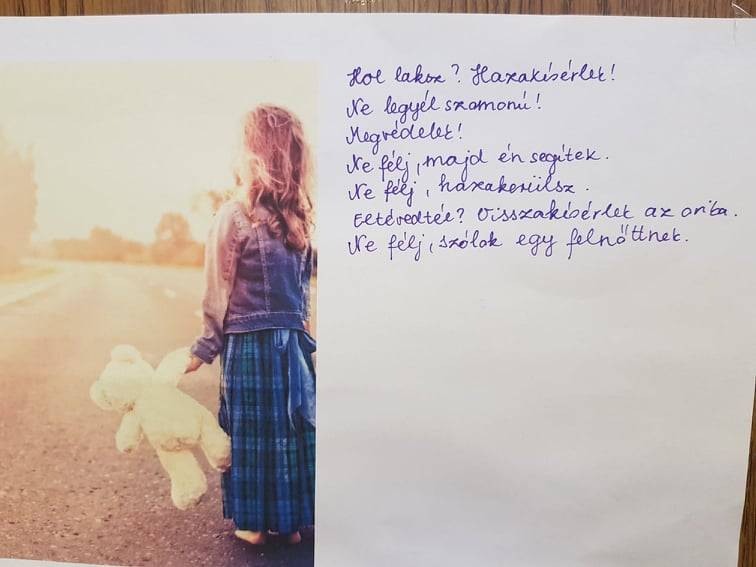 Hol laksz? Hazakísérlek!
Ne legyél szomorú!
Megvédelek!
Ne félj, majd én segítek.
Ne félj, hazakerülsz.
Eltévedtél? Visszakísérlek az oviba.
Ne félj, szólok egy felnőttnek.